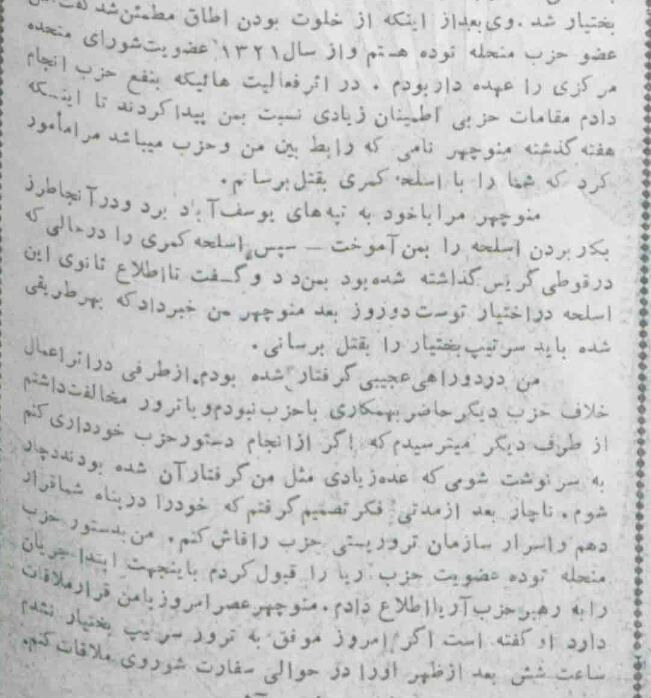 بختیار شد. وی بعداز اینکه از خلوت بودن اطاق مطمئن شد گفت من
عضو حزب منحله توده هستم واز سال ۱۳۲۱ عضویت شورای متحده
مرکزی را عهده دار بودم . در اثر فعالیت هائیکه بنفع حزب انجام
دادم مقامات حزبی اطمینان زیادی نسبت بمن پیدا کردند تا اینکه
هفته گذشته منوچهر نامی که رابط بین من وحزب میباشد مرامأمور
کرد که شما را با اسلحه کمری بقتل برسانم.
منوچهر مرا باخود به تپه های یوسف آباد برد ودر آنجا طرز
بکار بردن اسلحه را بمن آموخت – سپس اسلحه کمری را درحالی که
درقوطی گریس گذاشته شده بود بمن داد و گفت تا اطلاع ثانوی این
اسلحه دراختیار توست دوروز بعد منوچهر بمن خبرداد که بهر طریقی
شده باید سرتیپ بختیار را بقتل برسانی.
من دردوراهی عجیبی گرفتار شده بودم. ازطرفی دراثر اعمال
خلاف حزب دیگر حاضر بهمکاری باحزب نبودم و باترور مخالفت داشتم
از طرف دیگر میترسیدم که اگر ازانجام دستور حزب خودداری کنم
به سرنوشت شومی که عده زیادی مثل من گرفتار آن شده بودند دچار
شوم. ناچار بعد ازمدتی فکر تصمیم گرفتم که خودرا درپناه شما قرار
دهم واسرار سازمان تروریستی حزب رافاش کنم. من بدستور حزب
منحله توده عضویت حزب آریا را قبول کردم باینجهت ابتدا جریان
رابه رهبر حزب آریا اطلاع دادم. منوچهر عصر امروز بامن قرار ملاقات
دارد او گفته است اگر امروز موفق به ترور سرتیپ بختیار نشدم
ساعت شش بعد ازظهر اورا در حوالی سفارت شوروی ملاقات کنم.